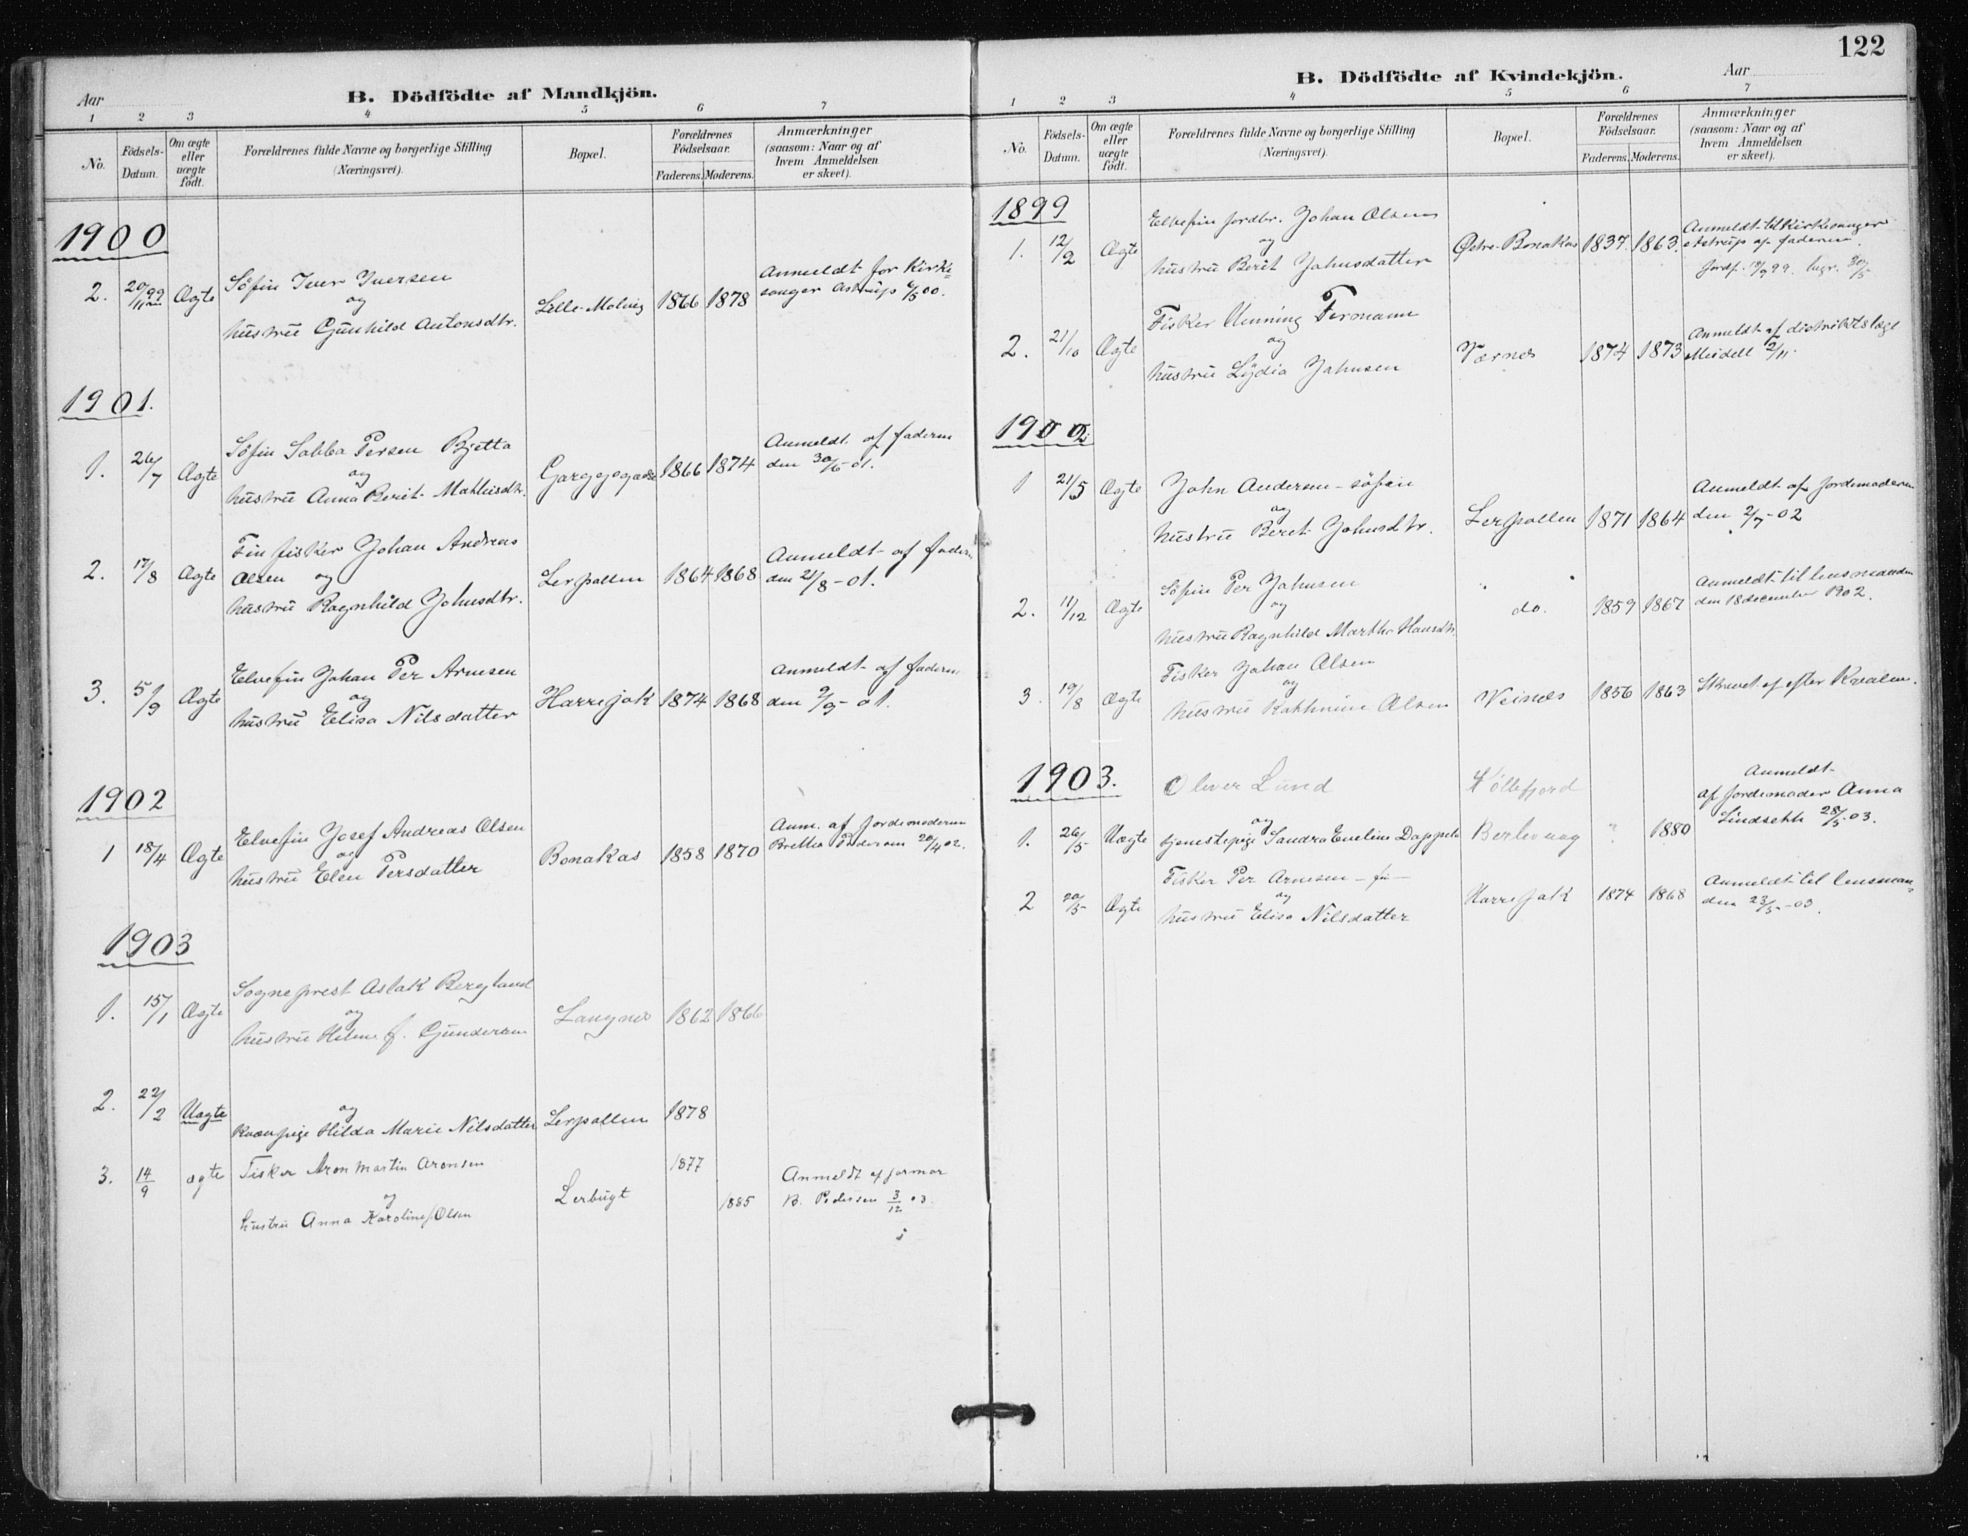 Aar
B. Dödfödte af Mandkjön.
1 2 3 4 5 6 7
No.
Födsels-Datum.
Om ægte eller uægte født.
Forældrenes fulde Navne og borgerlige Stilling
(Næringsvei).
Bopæl.
Forældrenes Födselsaar.
Faderens. Moderens.
Anmærkninger
(saasom: Naar og af
hvem Anmeldelsen
er skeet).
1900
2. 20/11 99 Ægte Söfin Iver Iversen
og
hustru Gunhild Antonsdtr. Lille-Molvig 1866 1878 Anmeldt for Kirke-
sanger Astrup 6/5 00.
1901.
1. 26/7 Ægte Söfin Sabba Persen Bjetta
og
hustru Anna Berit Mathisdtr. 1866 1874 Anmeldt af faderen
den 30/6-01.
2. 17/8 Ægte Finfisker Johan Andreas
Olsen og
hustru Ragnhild Johnsdtr. Lerpollen 1864 1868 Anmeldt af faderen
den 21/8-01.
3. 5/9 Ægte Elvefin Johan Per Arnesen
og
hustru Elisa Nilsdatter Harrejok 1874 1868 Anmeldt af faderen
den 9/9-01.
1902
1 18/4 Ægte Elvefin Josef Andreas Olsen
og
hustru Elen Persdatter Bonakas 1858 1870 Anm. af jordemoderen
Brettha Pedersen 20/4 02.
1903
1. 15/1 Ægte Sogneprest Aslak Bergland
og
hustru Helene f. Gundersen Langnes 1862 1866
2. 22/2 Uægte
og
Kvænpige Hilda Marie Nilsdatter Lerpollen 1878
3. 14/9 ægte Fisker Aron Martin Aronsen 1877
og
hustru Anna Karoline Olsen Lerbugt 1885 Anmeldt af jormor
B. Pedersen 3/12 03.
122
B. Dödfödte af Kvindekjön.
Aar
1 2 3 4 5 6 7
No.
Födsels-Datum.
Om ægte eller uægte født.
Forældrenes fulde Navne og borgerlige Stilling
(Næringsvei).
Bopæl.
Forældrenes Födselsaar.
Faderens. Moderens.
Anmærkninger
(saasom: Naar og af
hvem Anmeldelsen
er skeet).
1899
1. 12/2 Ægte Elvefin jordbr. Johan Olsen
og
hustru Berit Johnsdatter Østre-Bonakas 1837. 1863. Anmeldt til Kirkesanger
Astrup af faderen.
2. 21/10 Ægte Fisker Henning Fermann
og
hustru Lydia Johnsen Værnes 1874 1873 Anmeldt af distriktslæge
2/11.
1902
1 21/5 Ægte John Andersen - söfin
og
hustru Beret Johnsdtr. Lerpollen 1871 1864 Anmeldt af jordemoderen
den 2/7-02
2. 11/12 Ægte Söfin Per Johnsen
og
hustru Ragnhild Martha Hansdtr. do. 1859 1867 Anmeldt til lensmanden
den 18 december 1902.
3. 19/8 Ægte Fisker Johan Olsen
og
hustru Kathrine Olsen Veines 1856 1863
1903.
1. 26/5 Uægte Oliver Lund Kjøllefjord
og
tjenestepige Sandra Eveline Berlevaag " 1880 Anmeldt
af Jordemoder Anna
Lindseth 28/5 03.
2 20/5 Ægte Fisker Per Arnesen - fin -
og
hustru Elisa Nilsdatter Harrejok 1874 1868 Anmeldt til lensman-
den 23/5-03.